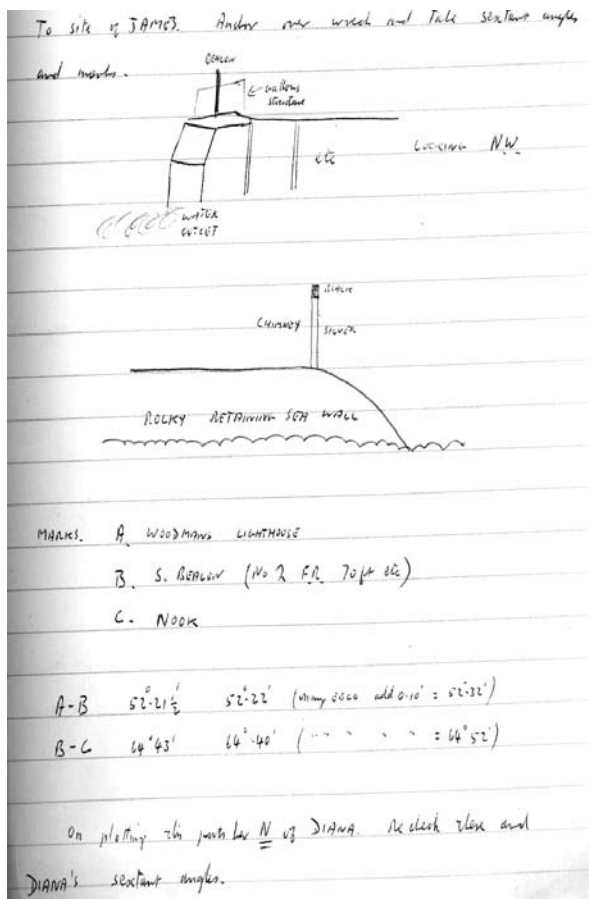 To site of JAMES. Anchor over wreck and take sextant angles
and marks.
BEACON
gallows
structure
etc
LOOKING N.W.
WATER
OUTLET
BLACK
CHIMNEY SILVER
ROCKY RETAINING SEA WALL
MARKS. A. WOODMANS LIGHTHOUSE
B. S. BEACON (No 2 F.R. 70ft etc)
C. NOOK
A-B 52°-21½' 52°-22' ( error add 0-10' = 52°-32')
B-C 64°43' 64°-40' ( " " " " = 64°52')
On plotting this puts her N of DIANA. Recheck these and
DIANA's sextant angles.